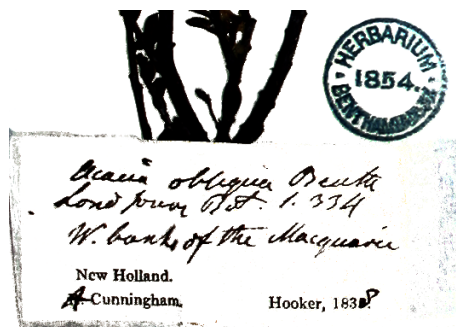 HERBARIUM
1854.
BENTHAMIANUM
Acacia obliqua Benth
Lond Journ Bot. 1. 334
W. bank of the Macquarie
New Holland.
A. Cunningham.
Hooker, 1838.